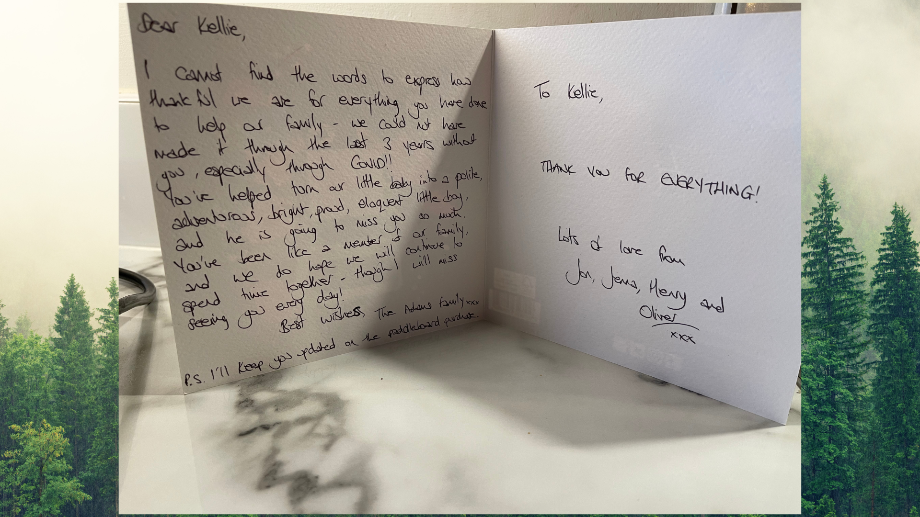 Dear Kellie,
I cannot find the words to express how
thankful we are for everything you have done
to help our family - we could not have
made it through the last 3 years without
you, especially through Covid!!
You've helped turn our little baby into a polite,
adventurous, bright, proud, eloquent little boy,
and he is going to miss you so much.
You've been like a member of our family,
and we do hope we will continue to
spend time together - though I will miss
seeing you every day!
Best wishes, The Adams family xxx
P.S. I'll keep you updated on the paddleboard purchase
To Kellie,
THANK YOU FOR EVERYTHING!
Lots of love from
Jon, Jenna, Henry and
Oliver
xxx